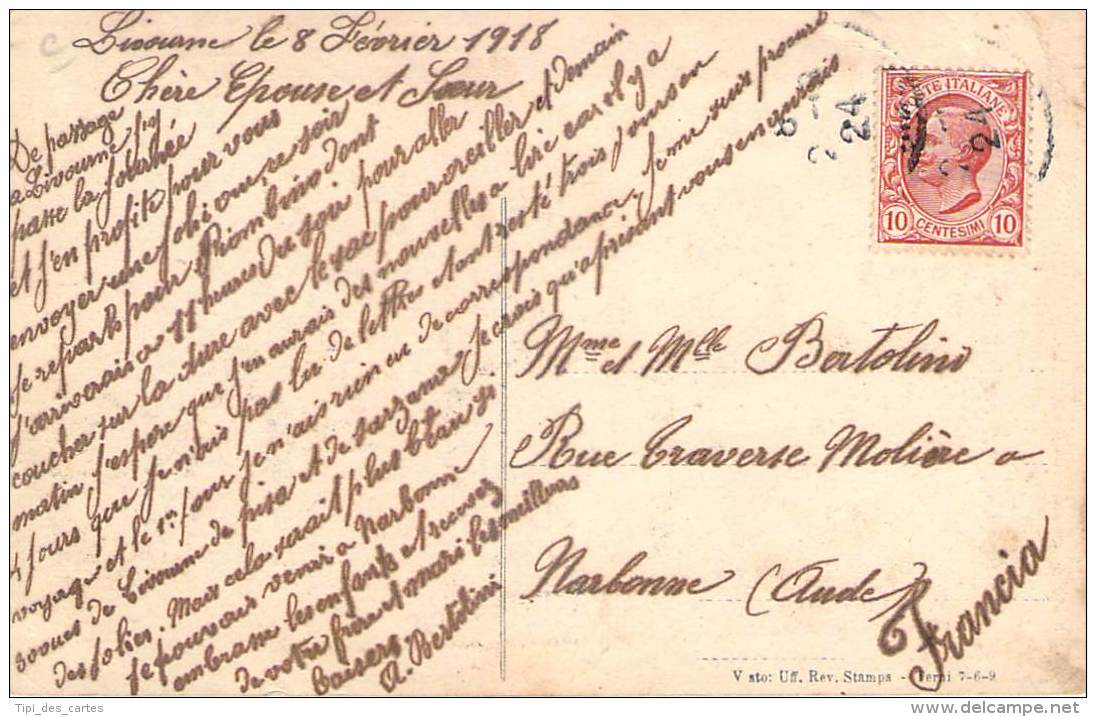 Livourne le 8 Février 1918
Chère Epouse et Sœur
De passage
a Livourne j'y
passe la journée
et j'en profite pour vous
envoyer une jolie vue ce soir
je repart pour Piombino dont
j'arriverais a 11 heures du soir pour aller
coucher sur la dure avec le sac pour oreiller et demain
matin j'espère que j'en aurais des nouvelles a lire car il y a
4 jours que je n'ais pas lu de lettres etant resté trois jours en
voyage et le 1er jour je n'ais rien eu de correspondance, je me suis procuré
30 vues de Livourne de pisa et de sarzana je crois qu'a présant vous en aurais
des jolies. Mais cela serait plus beau si
je pouvais venir a Narbonne
embrasse les enfants et recevez
de votre frère et mari les meilleurs
baisers
A. Bertolini
POSTE ITALIANE
10 CENTESIMI 10
24
Mme et Mlle Bertolino
Rue traverse Molière a
Narbonne (Aude)
Francia
Visto: Uff. Rev. Stampa - Terni 7-6-9
Tipi_des_cartes
delcampe.net